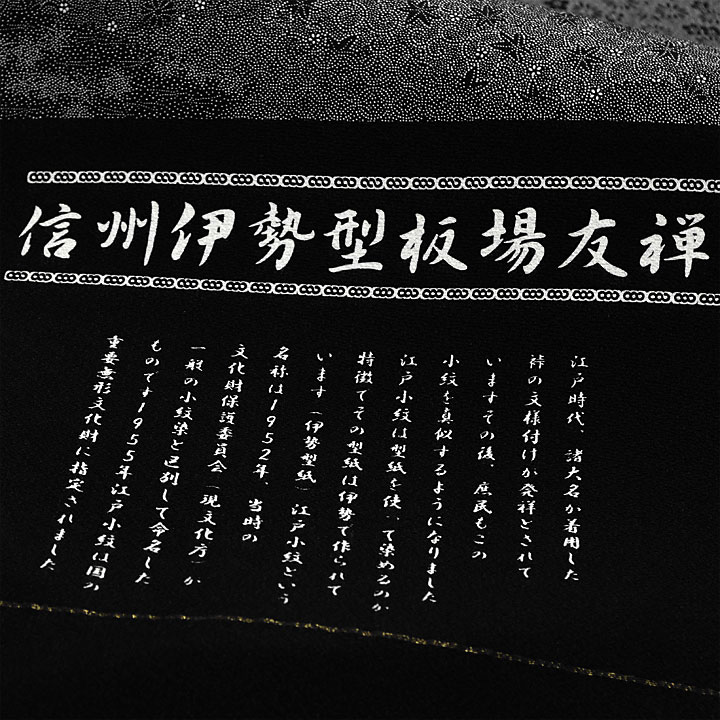 信州伊勢型板場友禅
江戸時代、諸大名が着用した
裃の文様付けが発祥とされて
いますその後、庶民もこの
小紋を真似するようになりました
江戸小紋は型紙を使って染めるのが
特徴でその型紙は伊勢で作られて
います（伊勢型紙）江戸小紋という
名称は1952年、当時の
文化財保護委員会（現文化庁）が
一般の小紋染と区別して命名した
ものです1955年江戸小紋は国の
重要無形文化財に指定されました